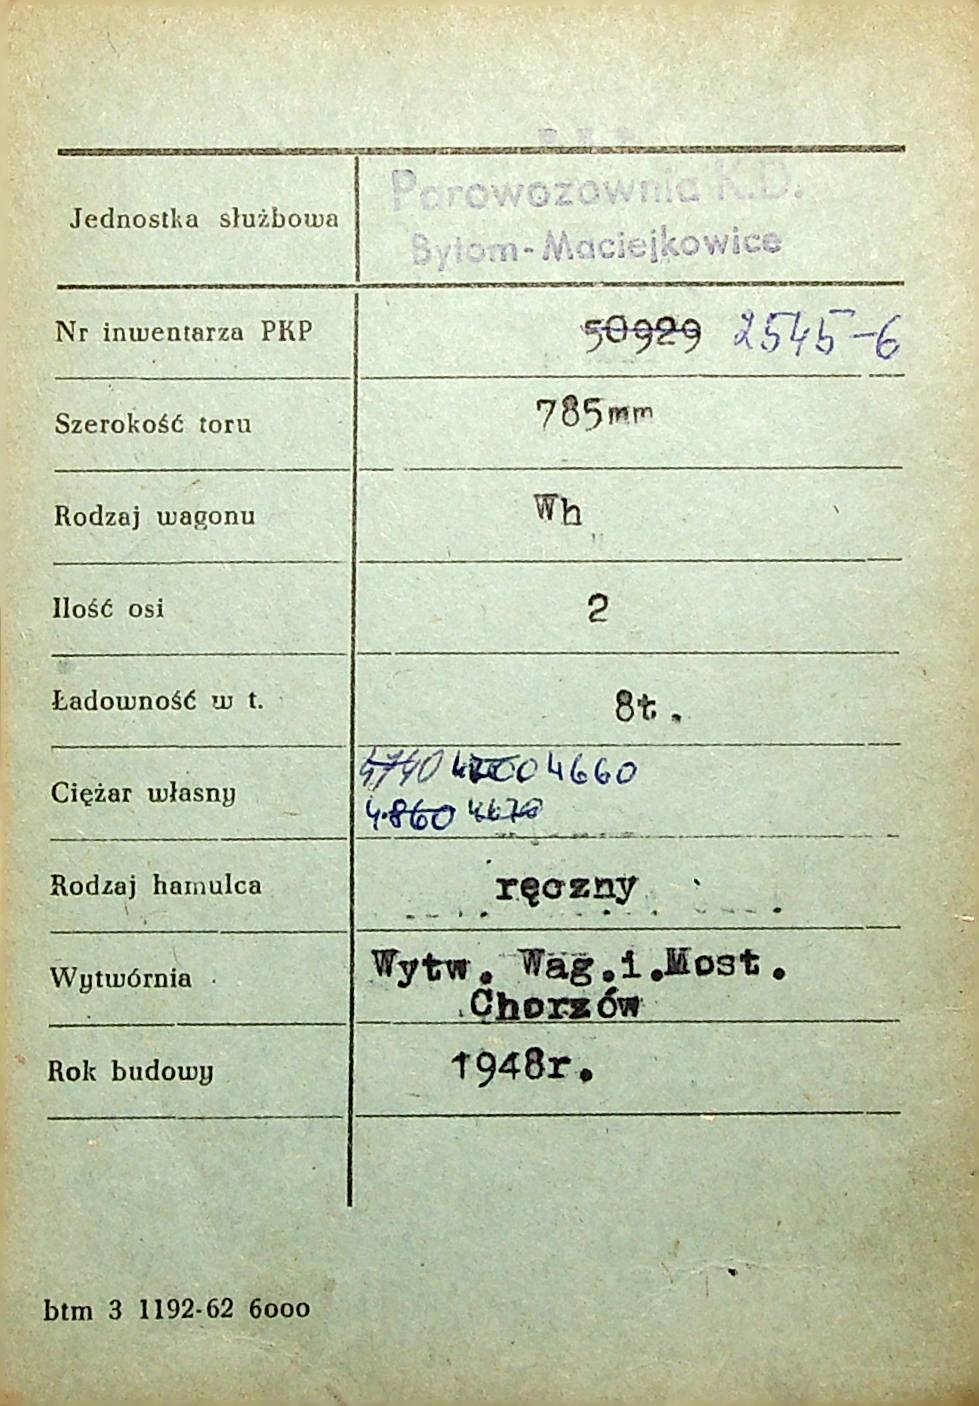 Parowozownia K.D.
Jednostka służbowa
Bytom-Maciejkowice
Nr inwentarza PKP 50929 2545-6
Szerokość toru 785mm
Rodzaj wagonu Wh
Ilość osi 2
Ładowność w t. 8t.
4740 4660
Ciężar własny
4.860 4670
Rodzaj hamulca ręczny
Wytw. Wag.i.Most.
Wytwórnia
Chorzów
Rok budowy 1948r.
btm 3 1192-62 6000